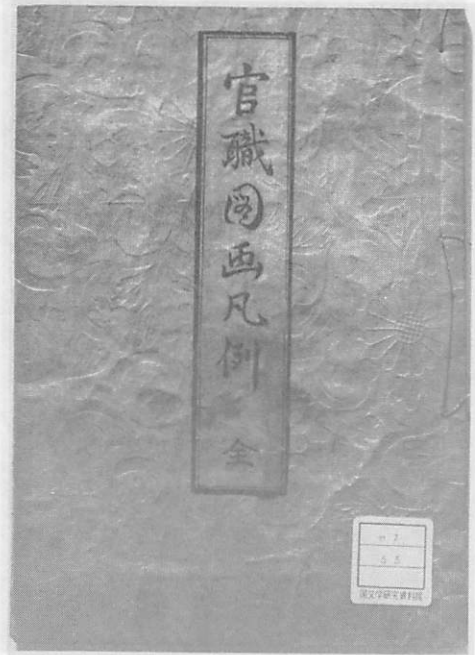 官職図画凡例 全
国文学研究資料館